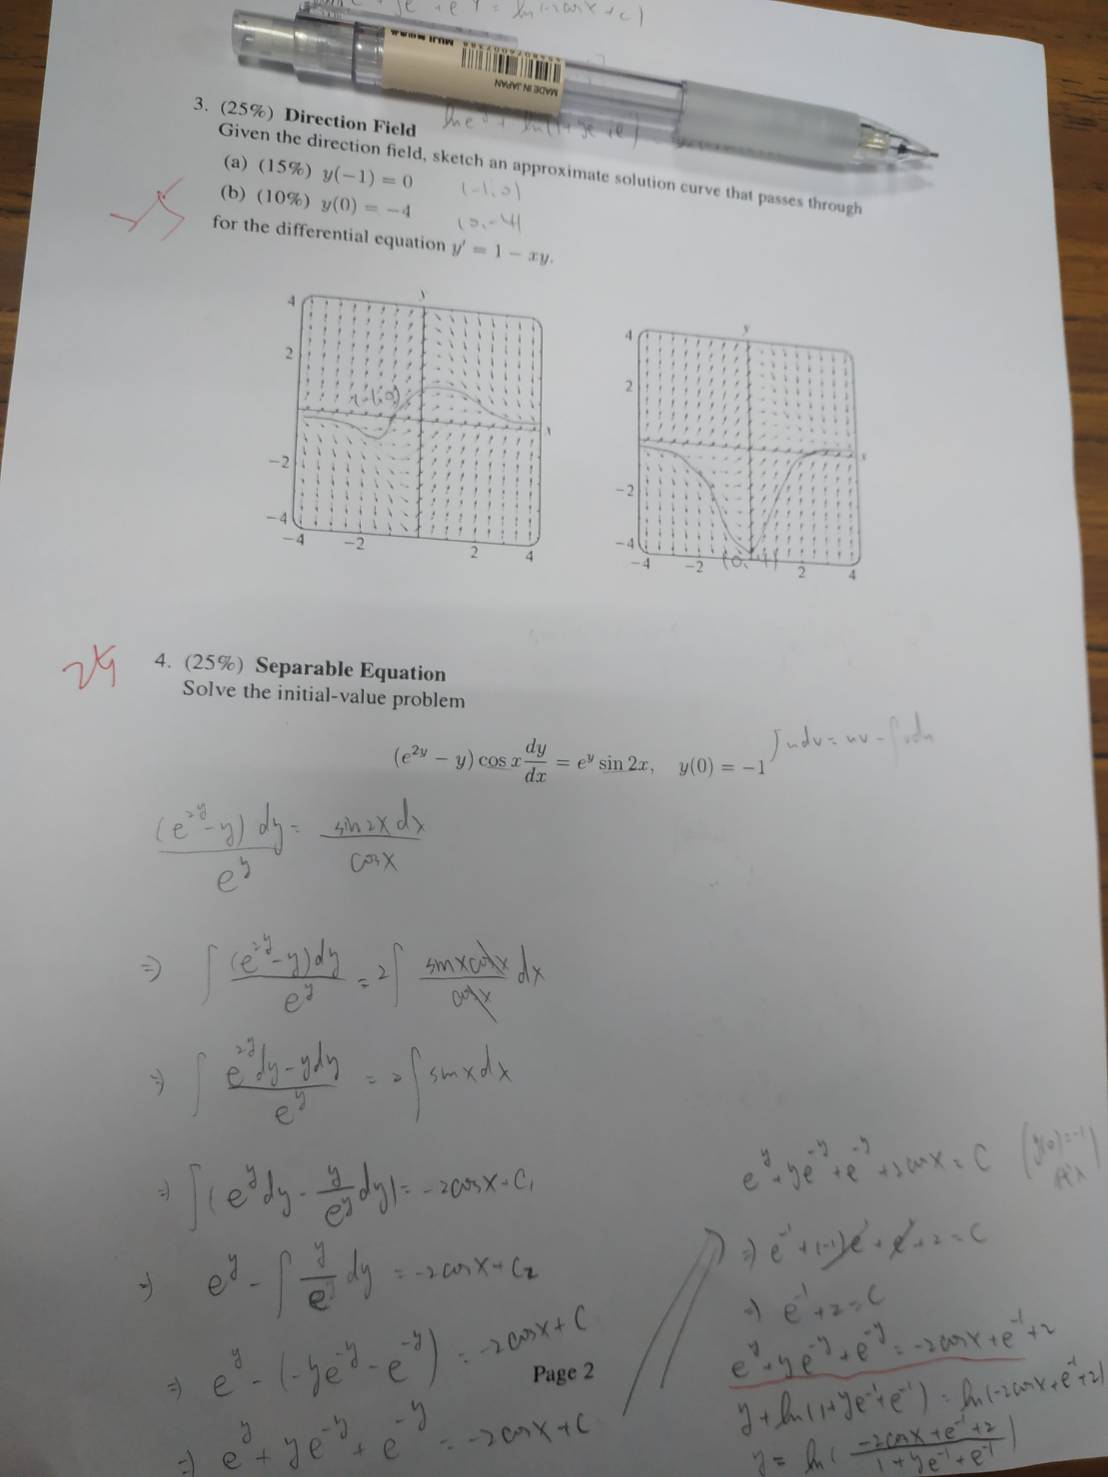 = ln(-2cosx+c)
MUJI
MADE IN JAPAN
3. (25%) Direction Field
Given the direction field, sketch an approximate solution curve that passes through
(a) (15%) y(−1) = 0
(-1,0)
(b) (10%) y(0) = −4
(0,-4)
for the differential equation y′ = 1 − xy.
y
4
2
(-1,0)
x
−2
−4
−4 −2 2 4
y
4
2
x
−2
−4
−4 −2 (0,-4) 2 4
25
4. (25%) Separable Equation
Solve the initial-value problem
(e^{2y} − y) cos x dy/dx = e^y sin 2x, y(0) = −1
∫udv = uv - ∫vdu
(e^{2y}-y) dy / e^y = sin2x dx / cosx
⇒ ∫ (e^{2y}-y)dy / e^y = 2∫ sinx cosx / cosx dx
⇒ ∫ e^{2y}dy-ydy / e^y = 2∫ sinxdx
⇒ ∫(e^y dy - y/e^y dy) = -2cosx+C₁
⇒ e^y - ∫ y/e^y dy = -2cosx+C₂
⇒ e^y - (-ye^{-y} - e^{-y}) = -2cosx+C
⇒ e^y + ye^{-y} + e^{-y} = -2cosx+C
Page 2
e^y + ye^{-y} + e^{-y} + 2cosx = C (y(0)=-1
⇒ e^{-1} + (-1)e + e + 2 = C
⇒ e^{-1}+2=C
e^y+ye^{-y}+e^{-y} = -2cosx+e^{-1}+2
y+ln(1+ye^{-1}+e^{-1}) = ln(-2cosx+e^{-1}+2)
y = ln( -2cosx+e^{-1}+2 / 1+ye^{-1}+e^{-1} )